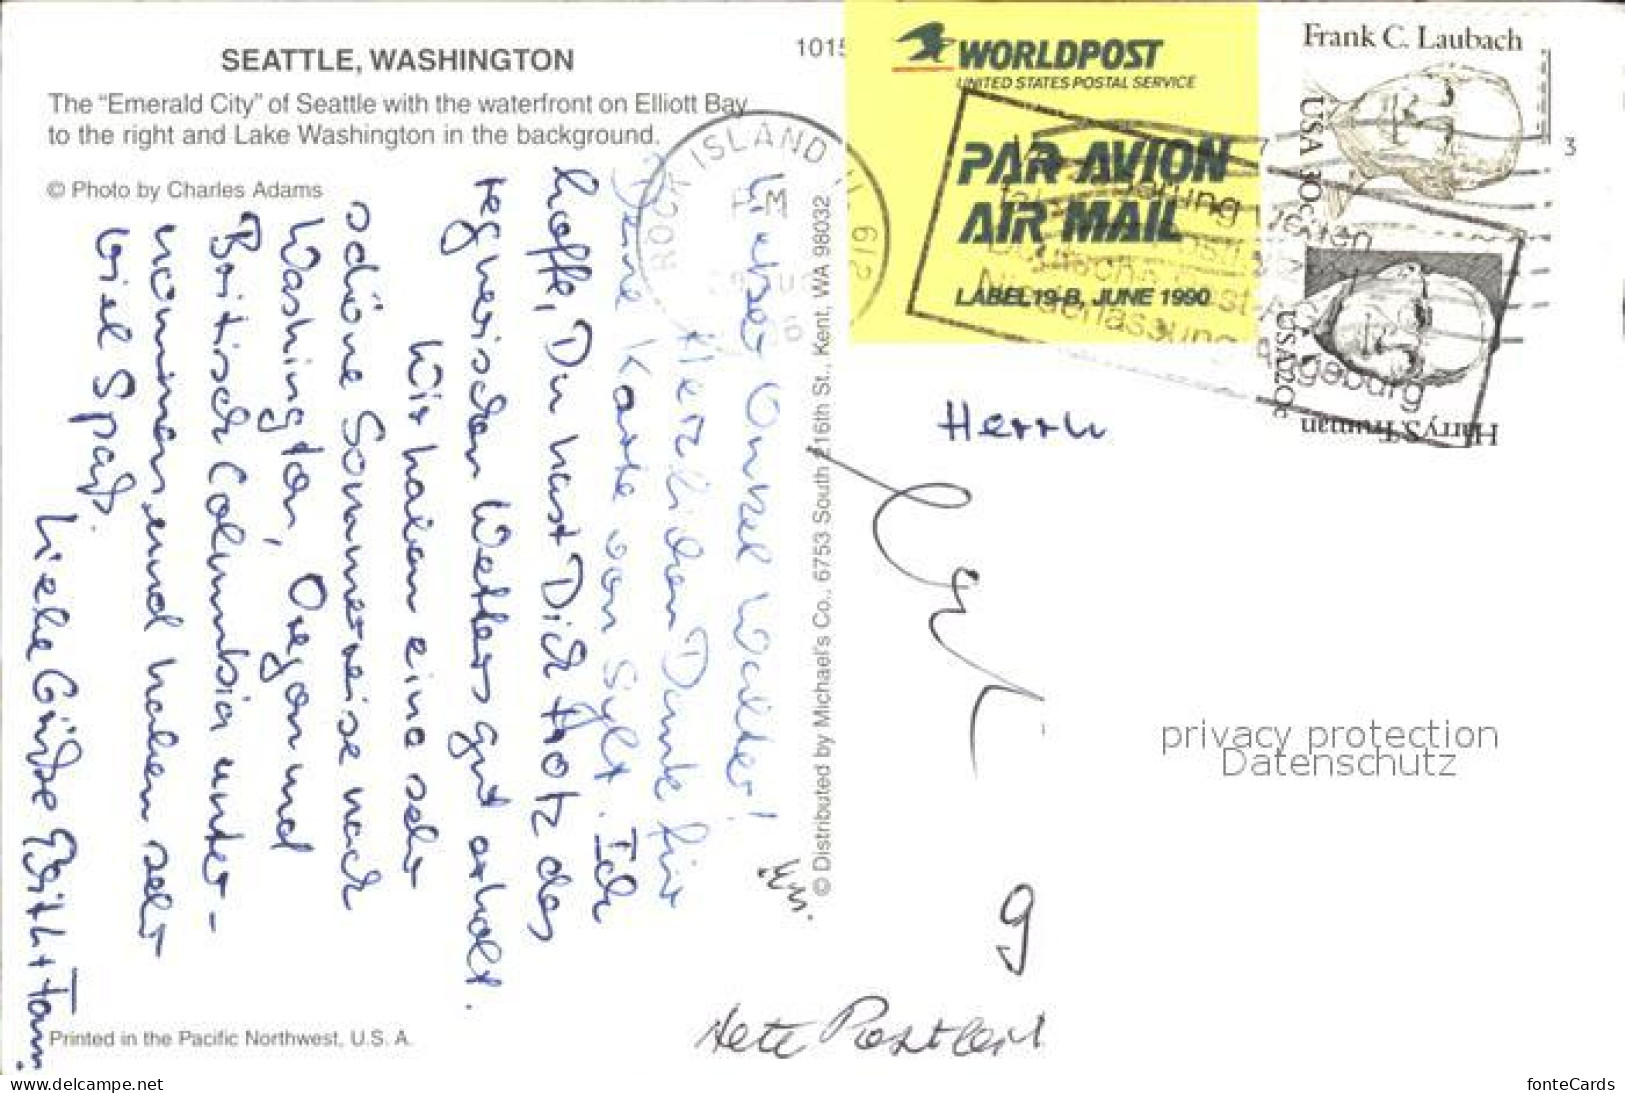 SEATTLE, WASHINGTON
The “Emerald City” of Seattle with the waterfront on Elliott Bay
to the right and Lake Washington in the background.
© Photo by Charles Adams
1015
WORLDPOST
UNITED STATES POSTAL SERVICE
PAR AVION
AIR MAIL
LABEL 19-B, JUNE 1990
Frank C. Laubach
USA 30c
Harry S. Truman
USA 20c
ROCK ISLAND IL 612
PM
Deutsche Post AG
Niederlassung
Augsburg
3
Lieber Onkel Walter!
Herzlichen Dank für
Deine Karte von Sylt. Ich
hoffe, Du hast Dich trotz des
regnerischen Wetters gut erholt.
Wir haben eine sehr
schöne Sommerreise nach
Washington, Oregon und
Britisch Columbia unter-
nommen und haben sehr
viel Spaß.
Liebe Grüße Edith + Fam.
© Distributed by Michael's Co., 6753 South 216th St., Kent, WA 98032
Herrn
g
Printed in the Pacific Northwest, U. S. A.
privacy protection
Datenschutz
www.delcampe.net
fonteCards